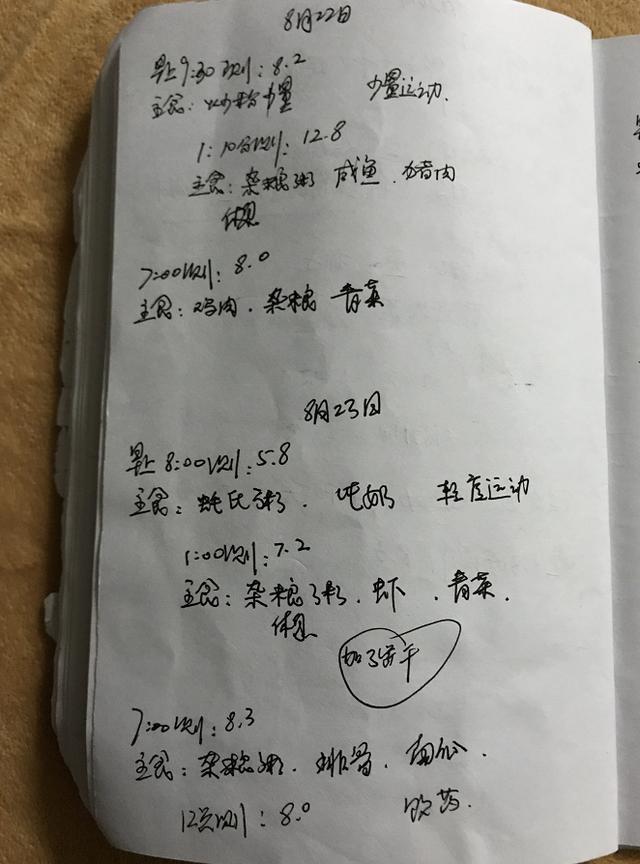 8月22日
早上9:30测: 8.2
主食: 炒粉少量 少量运动.
1:10分测: 12.8
主食: 杂粮粥 咸鱼.猪肉
休息
7:00测: 8.0
主食: 鸡肉.杂粮 青菜
8月23日
早上 8:00测: 5.8
主食: 粥. 纯奶 轻度运动
1:00测: 7.2
主食: 杂粮粥.虾.青菜.
休息
加了饼干
7:00测: 8.3
主食: 杂粮粥.排骨.南瓜.
12点测: 8.0 吃药.